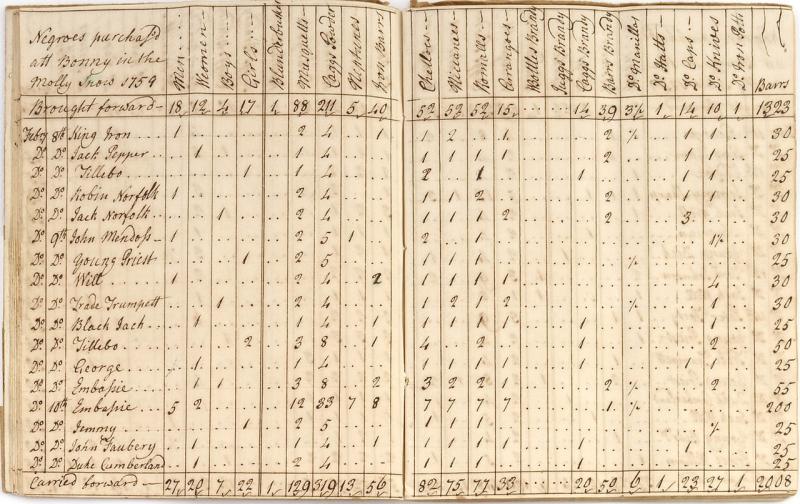 Negroes purchas'd
att Bonny in the
Molly Snow 1759
Men Women Boys Girls Blunderbusses Musquetts Caggs Powder Neptunes Iron Barrs Chelloes Nicanees Romalls Caranges Bottles Brandy Juggs Brandy Caggs Brandy Barrs Brandy Do. Manillas Do. Hatts Do. Caps Do. Knives Do. Iron Potts Barrs
Brought forward 18 12 4 17 1 88 211 5 40 52 52 52 15 .. .. 14 39 1 14 10 1 1323
Febry 8th King Iron 1 .. .. .. .. 2 4 .. 1 1 2 .. 1 .. .. .. 2 ½ .. 1 1 .. 30
Do. Do. Jack Pepper .. 1 .. .. .. 1 4 .. .. 1 1 1 1 .. .. .. 2 .. .. 1 1 .. 25
Do. Do. Tillebo .. .. .. 1 .. 1 4 .. .. 2 .. 1 .. .. .. 1 .. .. .. 1 1 .. 25
Do. Do. Robin Norfolk 1 .. .. .. .. 2 4 .. .. 1 1 2 .. .. .. .. 2 .. .. 1 1 .. 30
Do. Do. Jack Norfolk .. .. 1 .. .. 2 4 .. .. 1 1 1 2 .. .. .. 2 .. .. 3 .. .. 25
Do. 9th John Mendoss 1 .. .. .. .. 2 5 1 .. 2 .. 1 .. .. .. .. .. .. .. .. .. 30
Do. Do. Young Priest .. .. .. 1 .. 2 5 .. .. 1 1 1 .. .. .. .. .. ½ .. .. .. .. 25
Do. Do. Will 1 .. .. .. .. 2 4 .. 2 1 1 1 1 .. .. .. .. .. .. .. 4 .. 30
Do. Do. Trade Trumpett .. .. 1 .. .. 2 4 .. .. 1 2 1 2 .. .. .. .. ½ .. .. .. .. 30
Do. Do. Black Jack .. 1 .. .. .. 1 4 .. 1 1 1 1 1 .. .. 1 .. .. .. .. 1 .. 25
Do. Do. Tillebo .. .. .. 2 .. 3 8 .. 1 4 .. 2 .. .. .. 1 .. .. .. .. 2 .. 50
Do. Do. George .. 1 .. .. .. 1 4 .. .. 1 1 1 1 .. .. 1 .. .. .. 1 1 .. 25
Do. Do. Embassie .. 1 1 .. .. 3 8 .. 2 3 2 2 1 .. .. .. 2 ½ .. .. 2 .. 55
Do. 10th Embassie 5 2 .. .. .. 12 33 7 8 7 7 7 7 .. .. .. 1 ½ .. .. .. .. 200
Do. Do. Jemmy .. .. .. 1 .. 2 5 .. .. 1 1 1 .. .. .. .. .. .. .. .. ½ .. 25
Do. Do. John Faubery .. 1 .. .. .. 1 4 .. 1 1 1 1 1 .. .. 1 .. .. .. 1 .. .. 25
Do. Do. Duke Cumberland .. 1 .. .. .. 2 4 .. .. 1 1 1 .. .. .. 1 .. .. .. .. .. .. 25
Carried forward 27 20 7 22 1 129 319 13 56 82 75 77 33 .. .. 20 50 6 1 23 27 1 2008